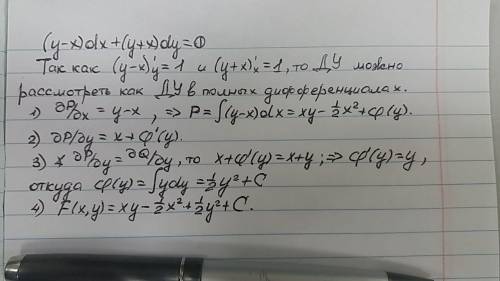 (y-x)dx+(y+x)dy=0
Так как (y-x)'y=1 и (y+x)'x=1, то ДУ можно
рассмотреть как ДУ в полных дифференциалах.
1) ∂P/∂x = y-x, ⇒ P=∫(y-x)dx=xy-½x²+φ(y).
2) ∂P/∂y = x+φ'(y).
3) ∂P/∂y=∂Q/∂y, то x+φ'(y)=x+y; ⇒ φ'(y)=y,
откуда φ(y)=∫ydy=½y²+C
4) F(x,y)=xy-½x²+½y²+C.